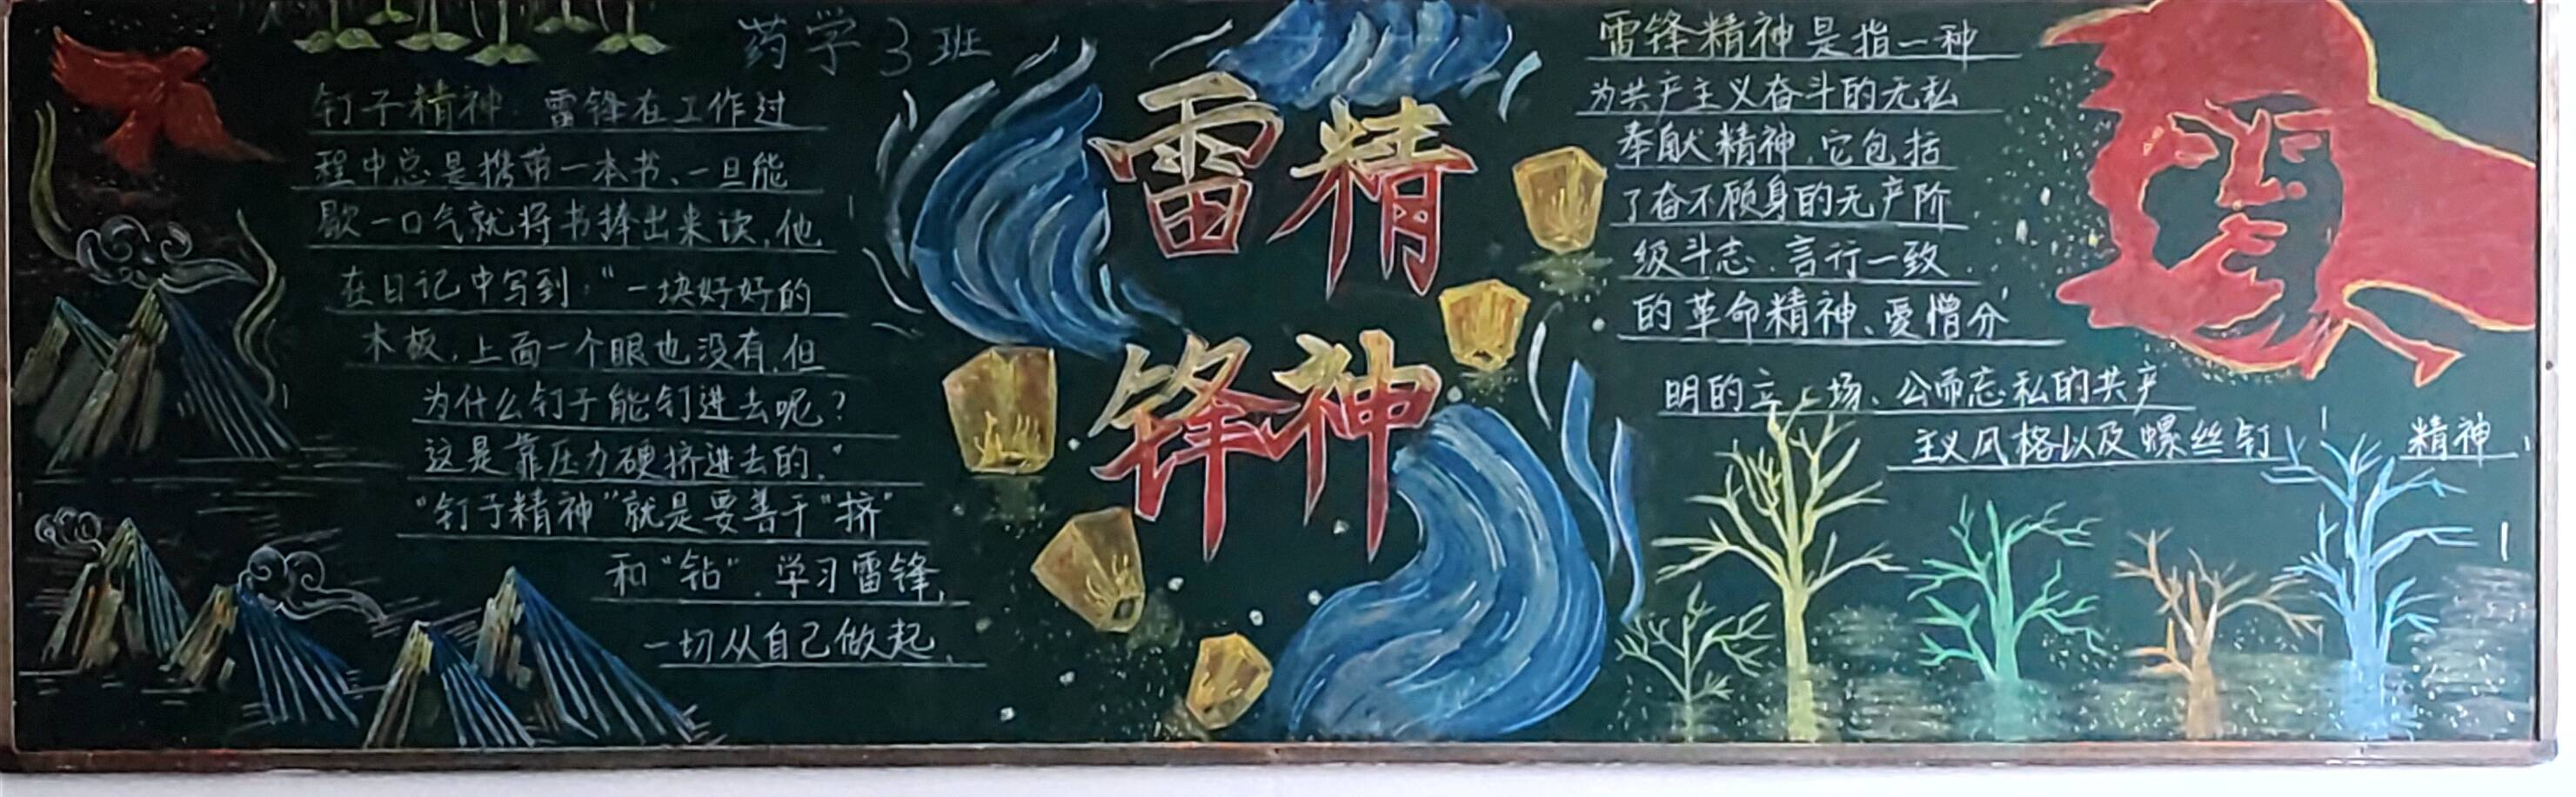 药学3班
钉子精神:雷锋在工作过
程中总是携带一本书、一旦能
歇一口气就将书捧出来读,他
在日记中写到:“一块好好的
木板,上面一个眼也没有,但
为什么钉子能钉进去呢?
这是靠压力硬挤进去的。”
“钉子精神”就是要善于“挤”
和“钻”.学习雷锋,
一切从自己做起、
雷精
锋神
雷锋精神是指一种
为共产主义奋斗的无私
奉献精神,它包括
了奋不顾身的无产阶
级斗志、言行一致
的革命精神、爱憎分
明的立场、公而忘私的共产
主义风格以及螺丝钉精神